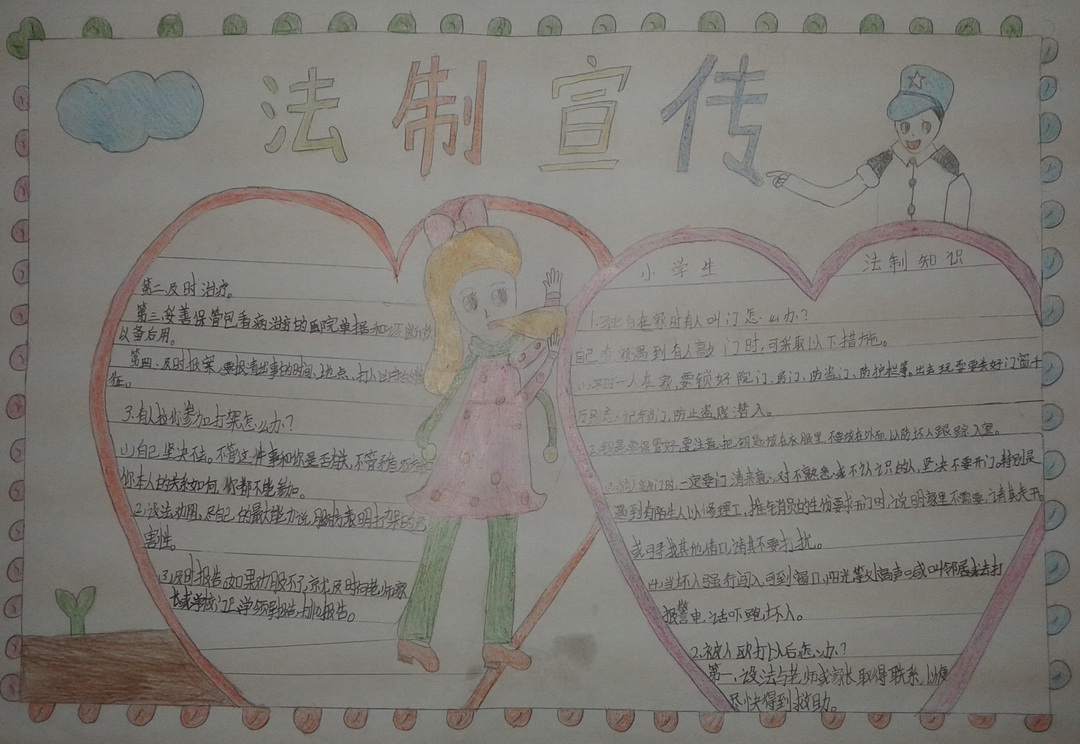 法制宣传
小学生 法制知识
1.独自在家时有人叫门怎么办?
自己在家遇到有人敲门时,可采取以下措施。
一人在家,要锁好院门、房门、防盗门、防护栏等。出去玩耍要养好门窗千
万别忘记锁门,防止盗贼潜入。
2.钥匙要保管好,要注意把钥匙放在衣服里,不要放在外面,以防坏人跟踪入室。
时,一定要问清来意,对不熟悉或不认识的人,坚决不要开门。特别是
遇到陌生人以修理工,推销员的身份要求开门时,说明家里不需要,请其离开
或寻找其他借口,请其不要打扰。
4.当坏人强行闯入,可到窗口,阳光高声喊叫邻居或去打
报警电话吓跑坏人。
2.被人殴打以后怎么办?
第一,设法与老师或家长取得联系,以便
尽快得到救助。
第二,及时治疗。
第三,妥善保管包看病治疗的医院单据和
以备后用。
第四,及时报案,要报清出事的时间、地点、打人
征。
3.有人拉你参加打架怎么办?
(1)自己坚决不去。不管这件事和你是否有关,不管
你本人的关系如何,你都不能参加。
2.设法劝阻。尽自己的最大能力说服,表明打架的危
害性。
3.及时报告。如果劝服不了,就及时向老师家
长或学校报告。